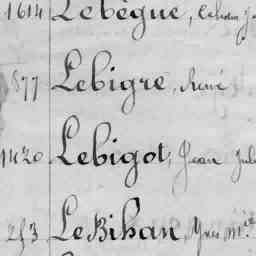 1614 Lebègue,
877 Lebigre, René
1420 Lebigot, Jean Jul
253 Le Bihan, Yves M.ie